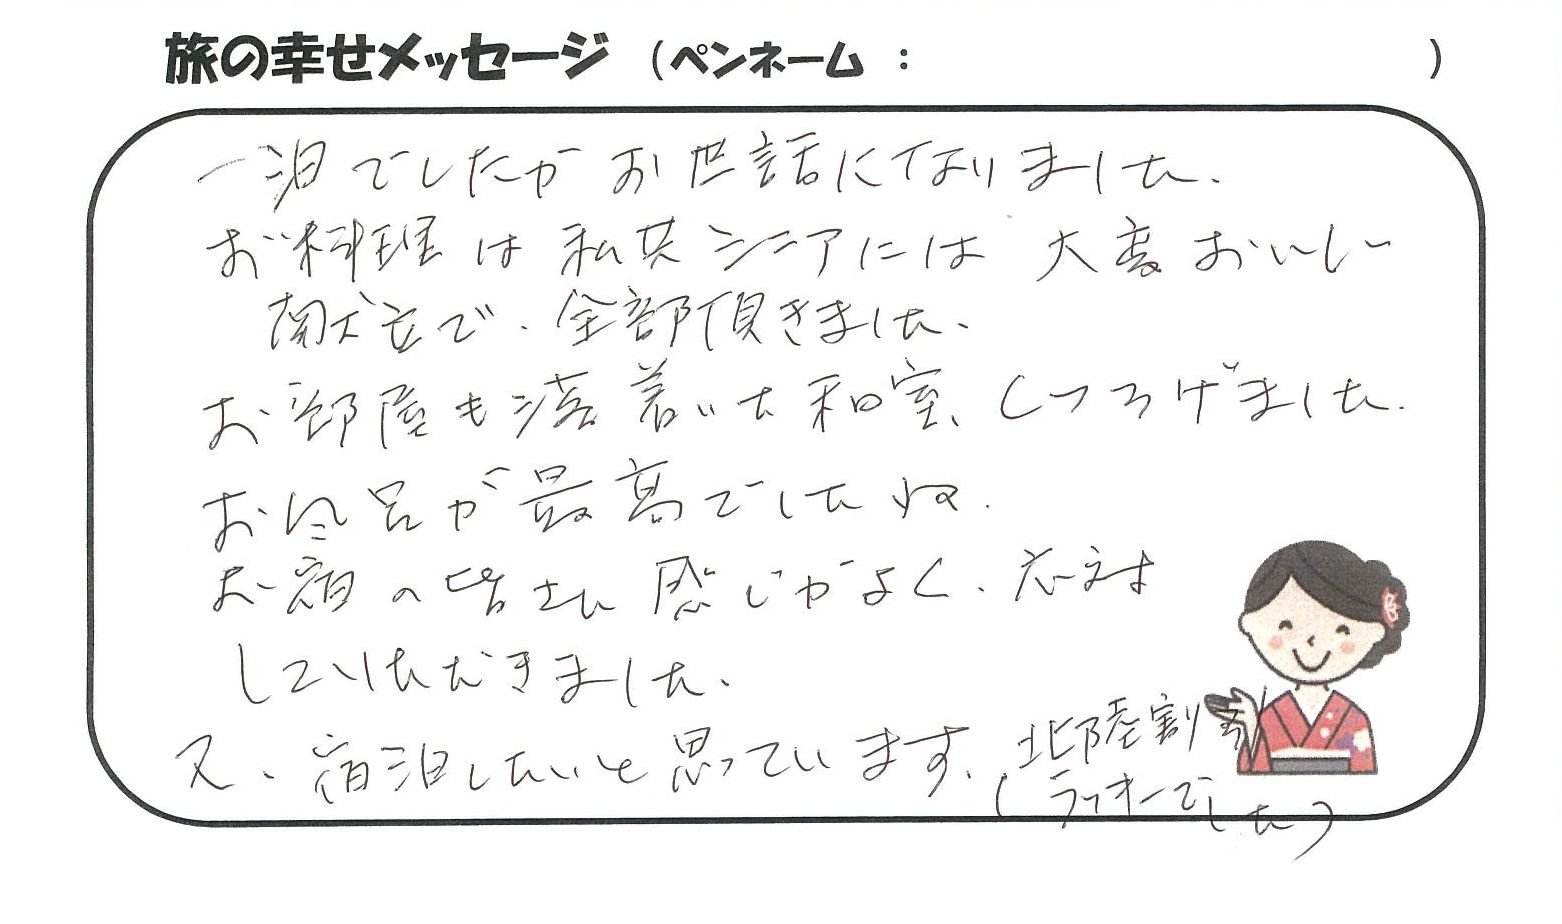 旅の幸せメッセージ (ペンネーム : )
一泊でしたがお世話になりました.
お料理は私共シニアには大変おいしい
献立で、全部頂きました、
お部屋も落着いた和室、くつろげました.
お風呂が最高でしたね.
お宿の皆さん感じがよく、応対
していただきました、
又、宿泊したいと思っています、
(北陸割り
ラッキーでした)